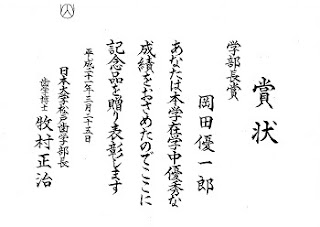 賞状
学部長賞
岡田優一郎
あなたは本学在学中優秀な
成績をおさめたのでここに
記念品を贈り表彰します
平成二十一年三月二十五日
日本大学松戸歯学部長
歯学博士 牧村正治